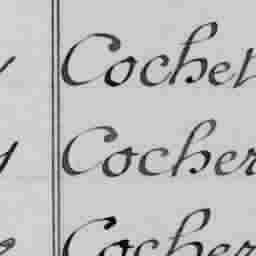 Cochet
Cocher
Cocher